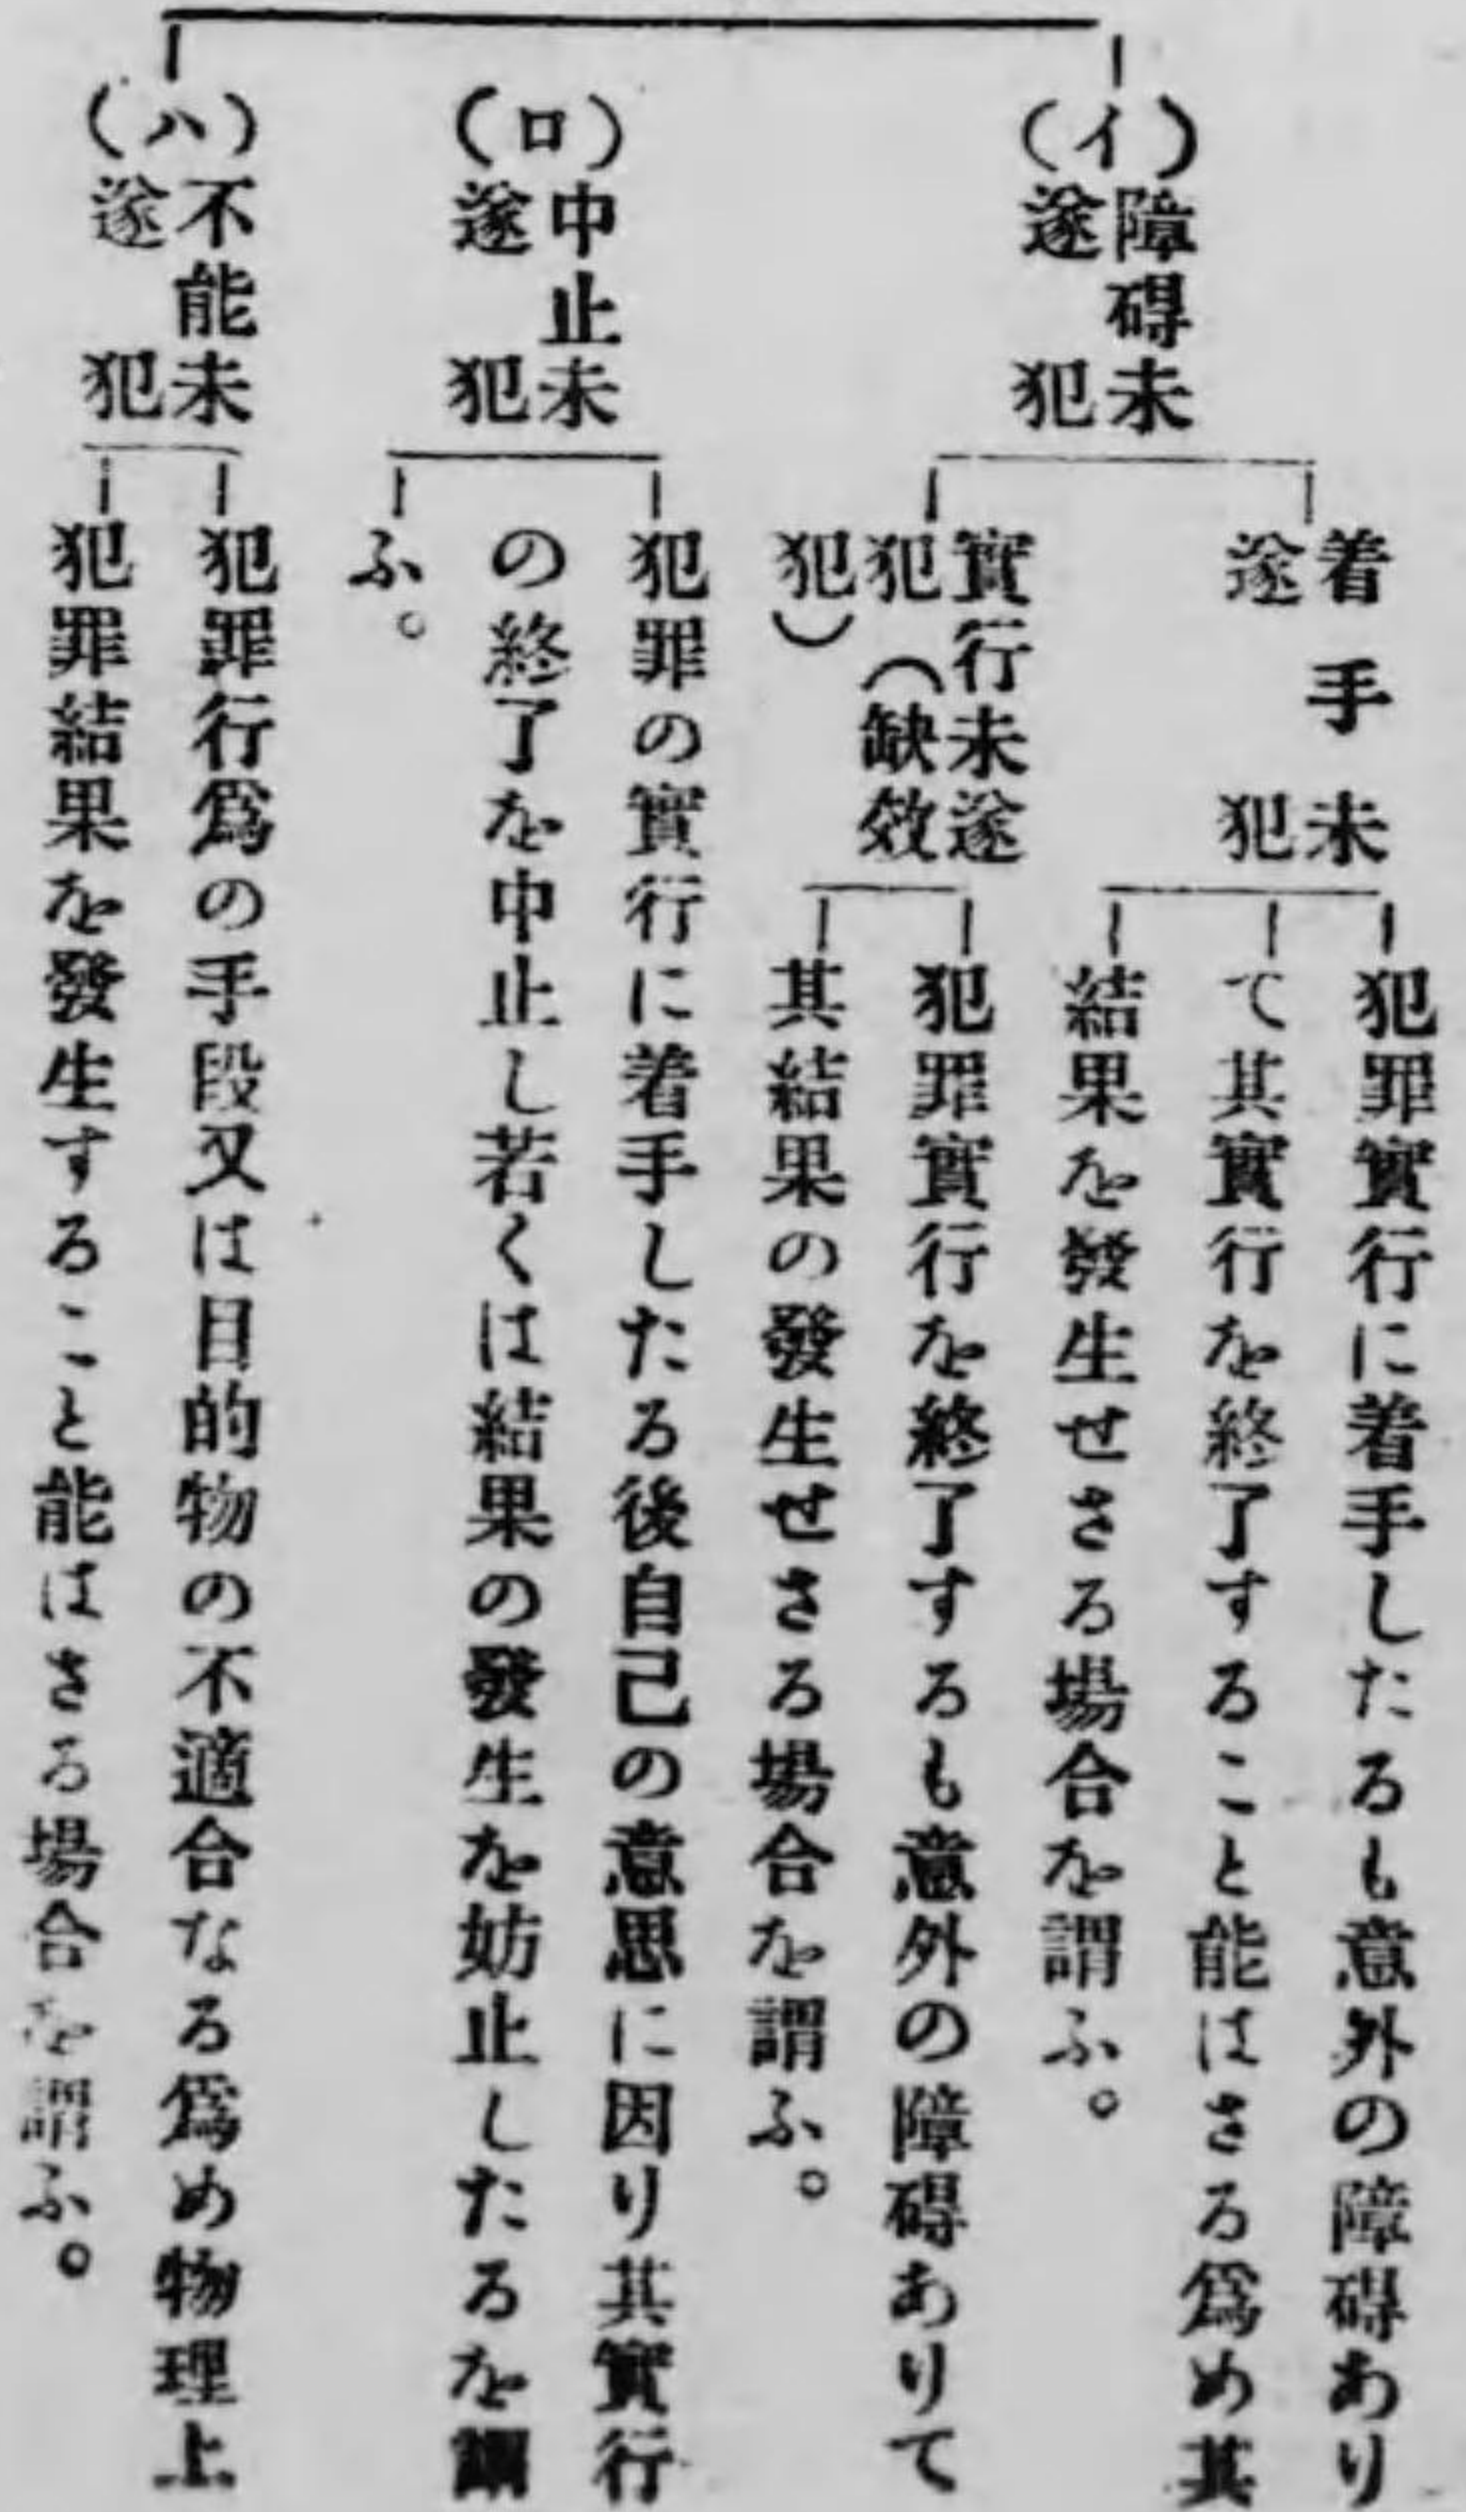 (イ)
障碍未
遂犯
着手未
遂犯
犯罪實行に着手したるも意外の障碍あり
て其實行を終了すること能はさる爲め其
結果を發生せさる場合を謂ふ。
實行未遂
犯(缺效
犯)
犯罪實行を終了するも意外の障碍ありて
其結果の發生せさる場合を謂ふ。
(ロ)
中止未
遂犯
犯罪の實行に着手したる後自己の意思に因り其實行
の終了を中止し若くは結果の發生を妨止したるを謂
ふ。
(ハ)
不能未
遂犯
犯罪行爲の手段又は目的物の不適合なる爲め物理上
犯罪結果を發生すること能はさる場合を謂ふ。